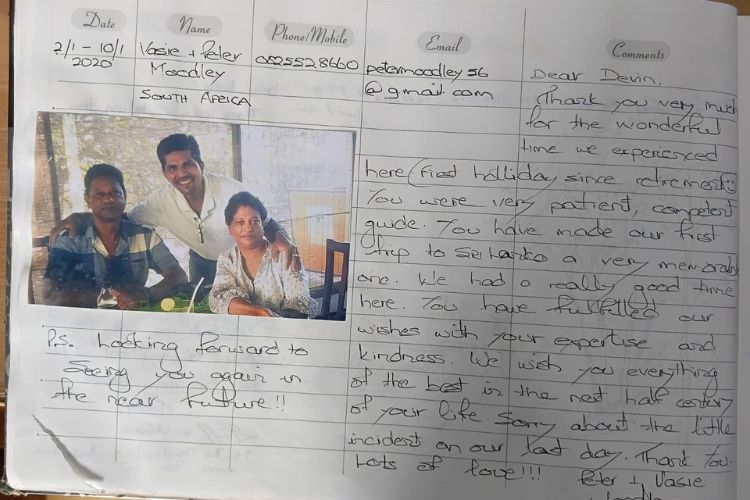 Date
Name
Phone/Mobile
Email
Comments
2/1 – 10/1
2020
Vasie + Peter
Moodley
SOUTH AFRICA
0825528660
petermoodley56
@gmail.com
Dear Devin.
Thank you very much
for the wonderful
time we experienced
here (first holliday since retirement)
You were very patient, competent
guide. You have made our first
trip to Sri Lanka a very memorable
one. We had a really good time
here. You have fulfilled our
wishes with your expertise and
kindness. We wish you everything
of the best in the next half century
of your life. Sorry about the little
incident on our last day. Thank You.
Lots of love!!!
Peter + Vasie
P.S. Looking forward to
seeing you again in
the near future!!